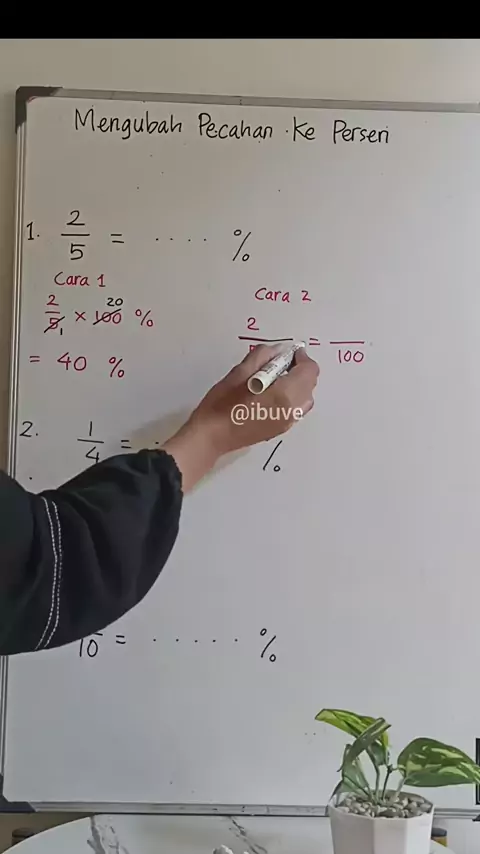 Mengubah Pecahan Ke Persen
1. 2/5 = .... %
Cara 1
2/5 1 × 100 20 %
= 40 %
Cara 2
2 = /100
@ibuve
2. 1/4 = %
10 = ..... %